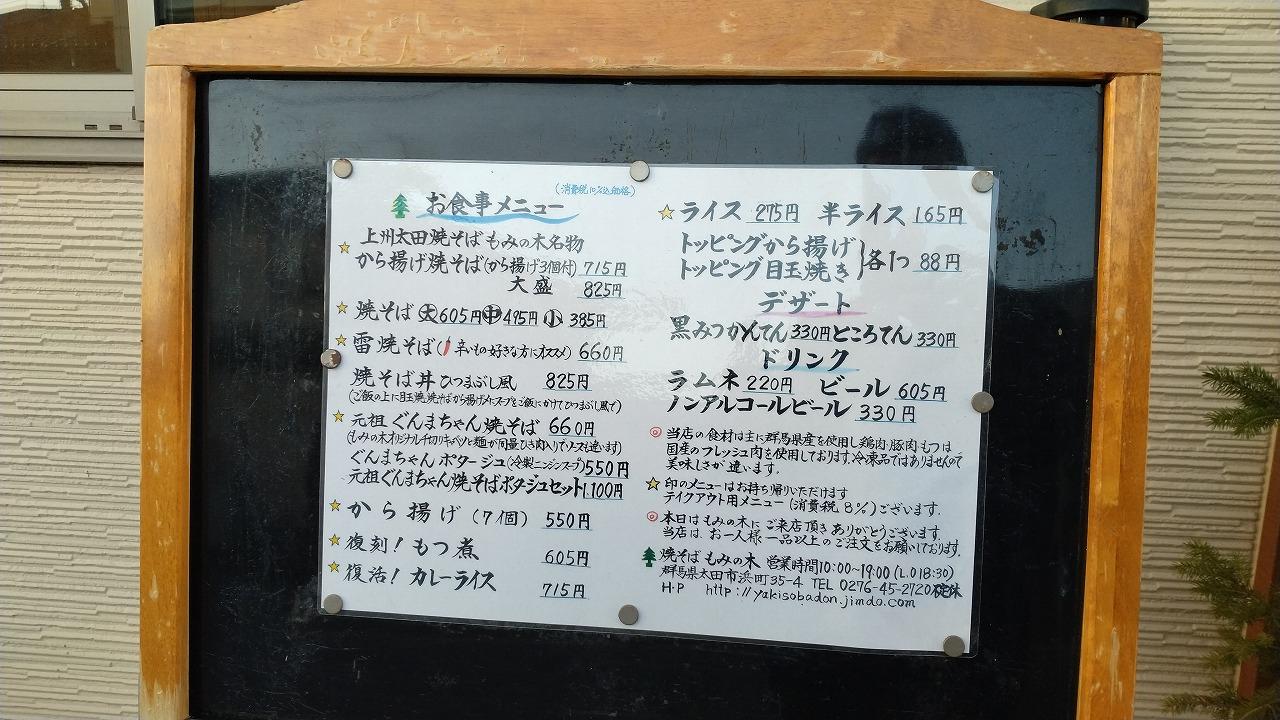 お食事メニュー
(消費税10%込価格)
上州太田焼そばもみの木名物
から揚げ焼そば(から揚げ3個付) 715円
大盛 825円
焼そば 大605円 中495円 小 385円
雷焼そば(辛いもの好きな方にオススメ) 660円
焼そば丼 ひつまぶし風 825円
(ご飯の上に目玉焼焼そばから揚げスープをご飯にかけてひつまぶし風で)
元祖 ぐんまちゃん焼そば 660円
(もみの木オリジナル千切りキャベツと麺が同量ひき肉入りでソースも違います)
ぐんまちゃん ポタージュ(冷製ニンジンスープ)550円
元祖ぐんまちゃん焼そばポタジュセット1,100円
から揚げ (7個) 550円
復刻! もつ煮 605円
復活! カレーライス 715円
ライス 275円 半ライス 165円
トッピングから揚げ
トッピング目玉焼き
各1つ 88円
デザート
黒みつかんてん 330円ところてん 330円
ドリンク
ラムネ 220円 ビール 605円
ノンアルコールビール 330円
当店の食材は主に群馬県産を使用し鶏肉、豚肉もつは
国産のフレッシュ肉を使用しております。冷凍品ではありませんので
美味しさが違います。
印のメニューはお持ち帰りいただけます
テイクアウト用メニュー(消費税8%)ございます。
本日はもみの木にご来店頂きありがとうございます。
当店は、お一人様一品以上のご注文をお願いしております。
焼そばもみの木 営業時間10:00~19:00(L.O18:30)
群馬県太田市浜町35-4 TEL 0276-45-2720
H・P http://yakisobadon.jimdo.com